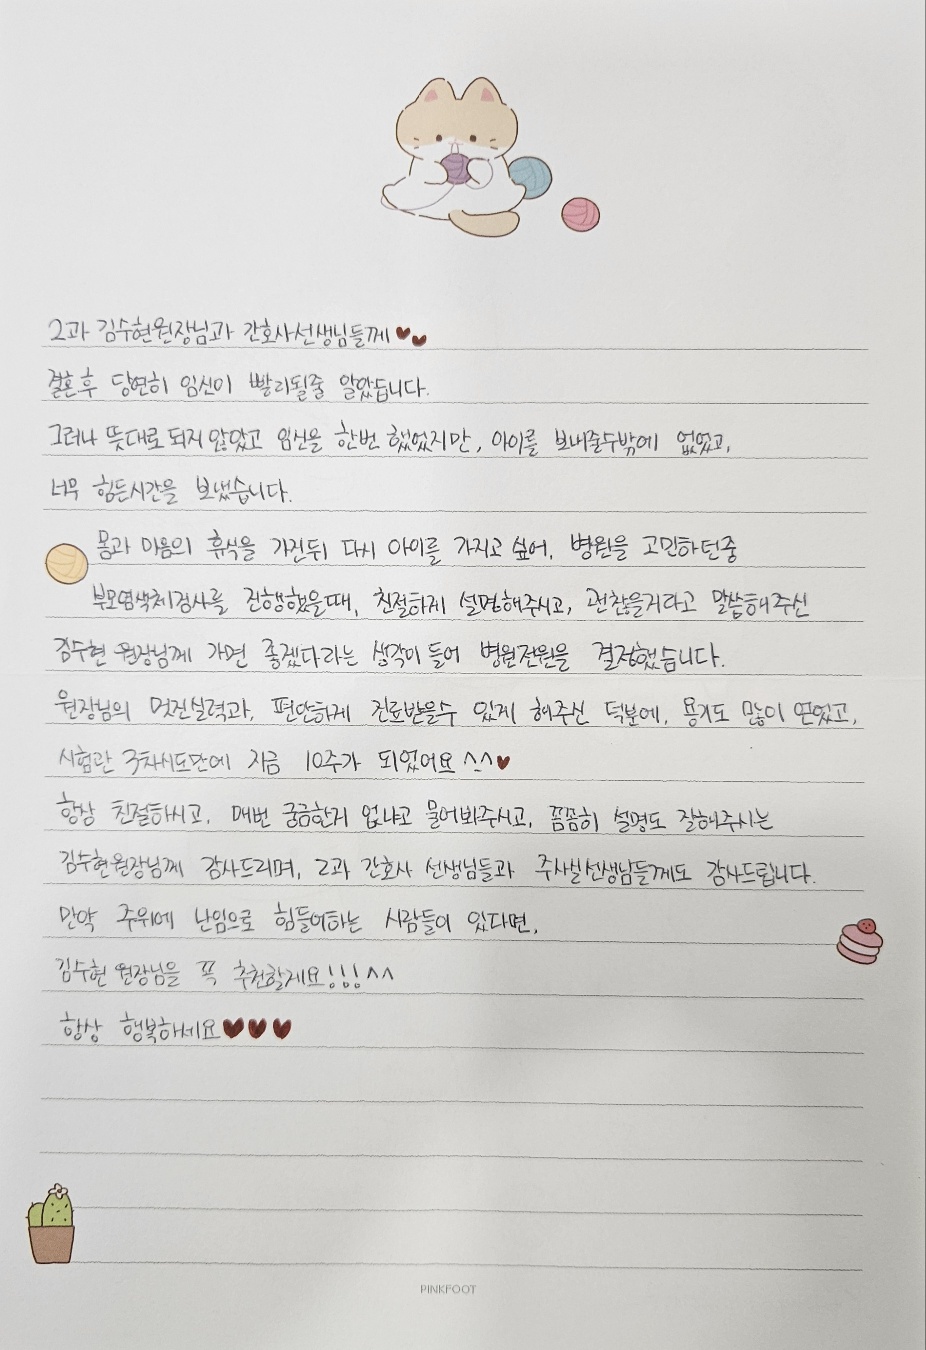 2과 김수현원장님과 간호사선생님들께♥♥
결혼 후 당연히 임신이 빨리될줄 알았습니다.
그러나 뜻대로 되지 않았고 임신을 한번 했었지만, 아이를 보내줄수밖에 없었고,
너무 힘든시간을 보냈습니다.
몸과 마음의 휴식을 가진뒤 다시 아이를 가지고 싶어, 병원을 고민하던중
부모염색체검사를 진행했을때, 친절하게 설명해주시고, 괜찮을거라고 말씀해주신
김수현 원장님께 가면 좋겠다라는 생각이 들어 병원전원을 결정했습니다.
원장님의 멋진실력과, 편안하게 진료받을수 있게 해주신 덕분에, 용기도 많이 얻었고,
시험관 3차시도만에 지금 10주가 되었어요^^♥
항상 친절하시고, 매번 궁금한거 없냐고 물어봐주시고, 꼼꼼히 설명도 잘해주시는
김수현원장님께 감사드리며, 2과 간호사 선생님들과 주사실선생님들께도 감사드립니다.
만약 주위에 난임으로 힘들어하는 사람들이 있다면,
김수현 원장님을 꼭 추천할게요!!!^^
항상 행복하세요♥♥♥
PINKFOOT